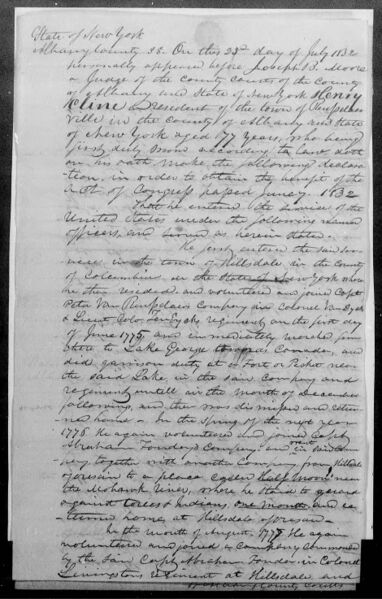 State of New York
Albany County SS. On this 23d day of July 1832
personally appeared before Joseph B. Moore
a Judge of the County Courts of the County
of Albany and State of New York Henry
Kline a resident of the town of Rensselaer
ville in the County of Albany and State
of New York aged 77 years, who being
first duly sworn according to Law doth
on his oath make the following declara
tion, in order to obtain the benefit of the
Act of Congress passed June 7 1832
That he entered the service of the
United States under the following named
officers, and served as herein stated.
He first entered the said Ser
vice in the town of Hillsdale in the County
of Columbia in the State of New York where
he then resided, and volunteered and joined Capt
Peter Van Renselaers Company in Colonel Van Dyck
& Lieut Colo regiment on the first day
of June 1775 and immediately marched from
there to Lake George Canada, and
did garrison duty at a Fort or Picket near
the said Lake in the said Company and
regiment untill in the month of December
following, and then was dismissed and retur
ned home. In the Spring of the next year
1776 He again volunteered and joined Capt
Abraham Fonders Company and in said Com
pany together with another Company from Hillsdale
aforesaid to a place called half moon near
the Mohawk River, where he staid to guard
against tories & Indians, one month and re
turned home at Hillsdale aforesaid
In the month of August 1777 He again
volunteered and joined a Company commanded
by the said Capt Abraham Fonder in Colonel
Livingstons regiment at Hillsdale and
County Courts